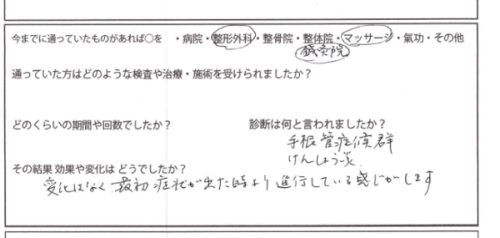 今までに通っていたものがあれば○を ・病院・整形外科・整骨院・整体院・マッサージ・氣功・その他
鍼灸院
通っていた方はどのような検査や治療・施術を受けられましたか？
どのくらいの期間や回数でしたか？ 診断は何と言われましたか？
手根管症候群
けんしょう炎
その結果 効果や変化は どうでしたか？
変化はなく 最初 症状が出た時より 進行している感じがします